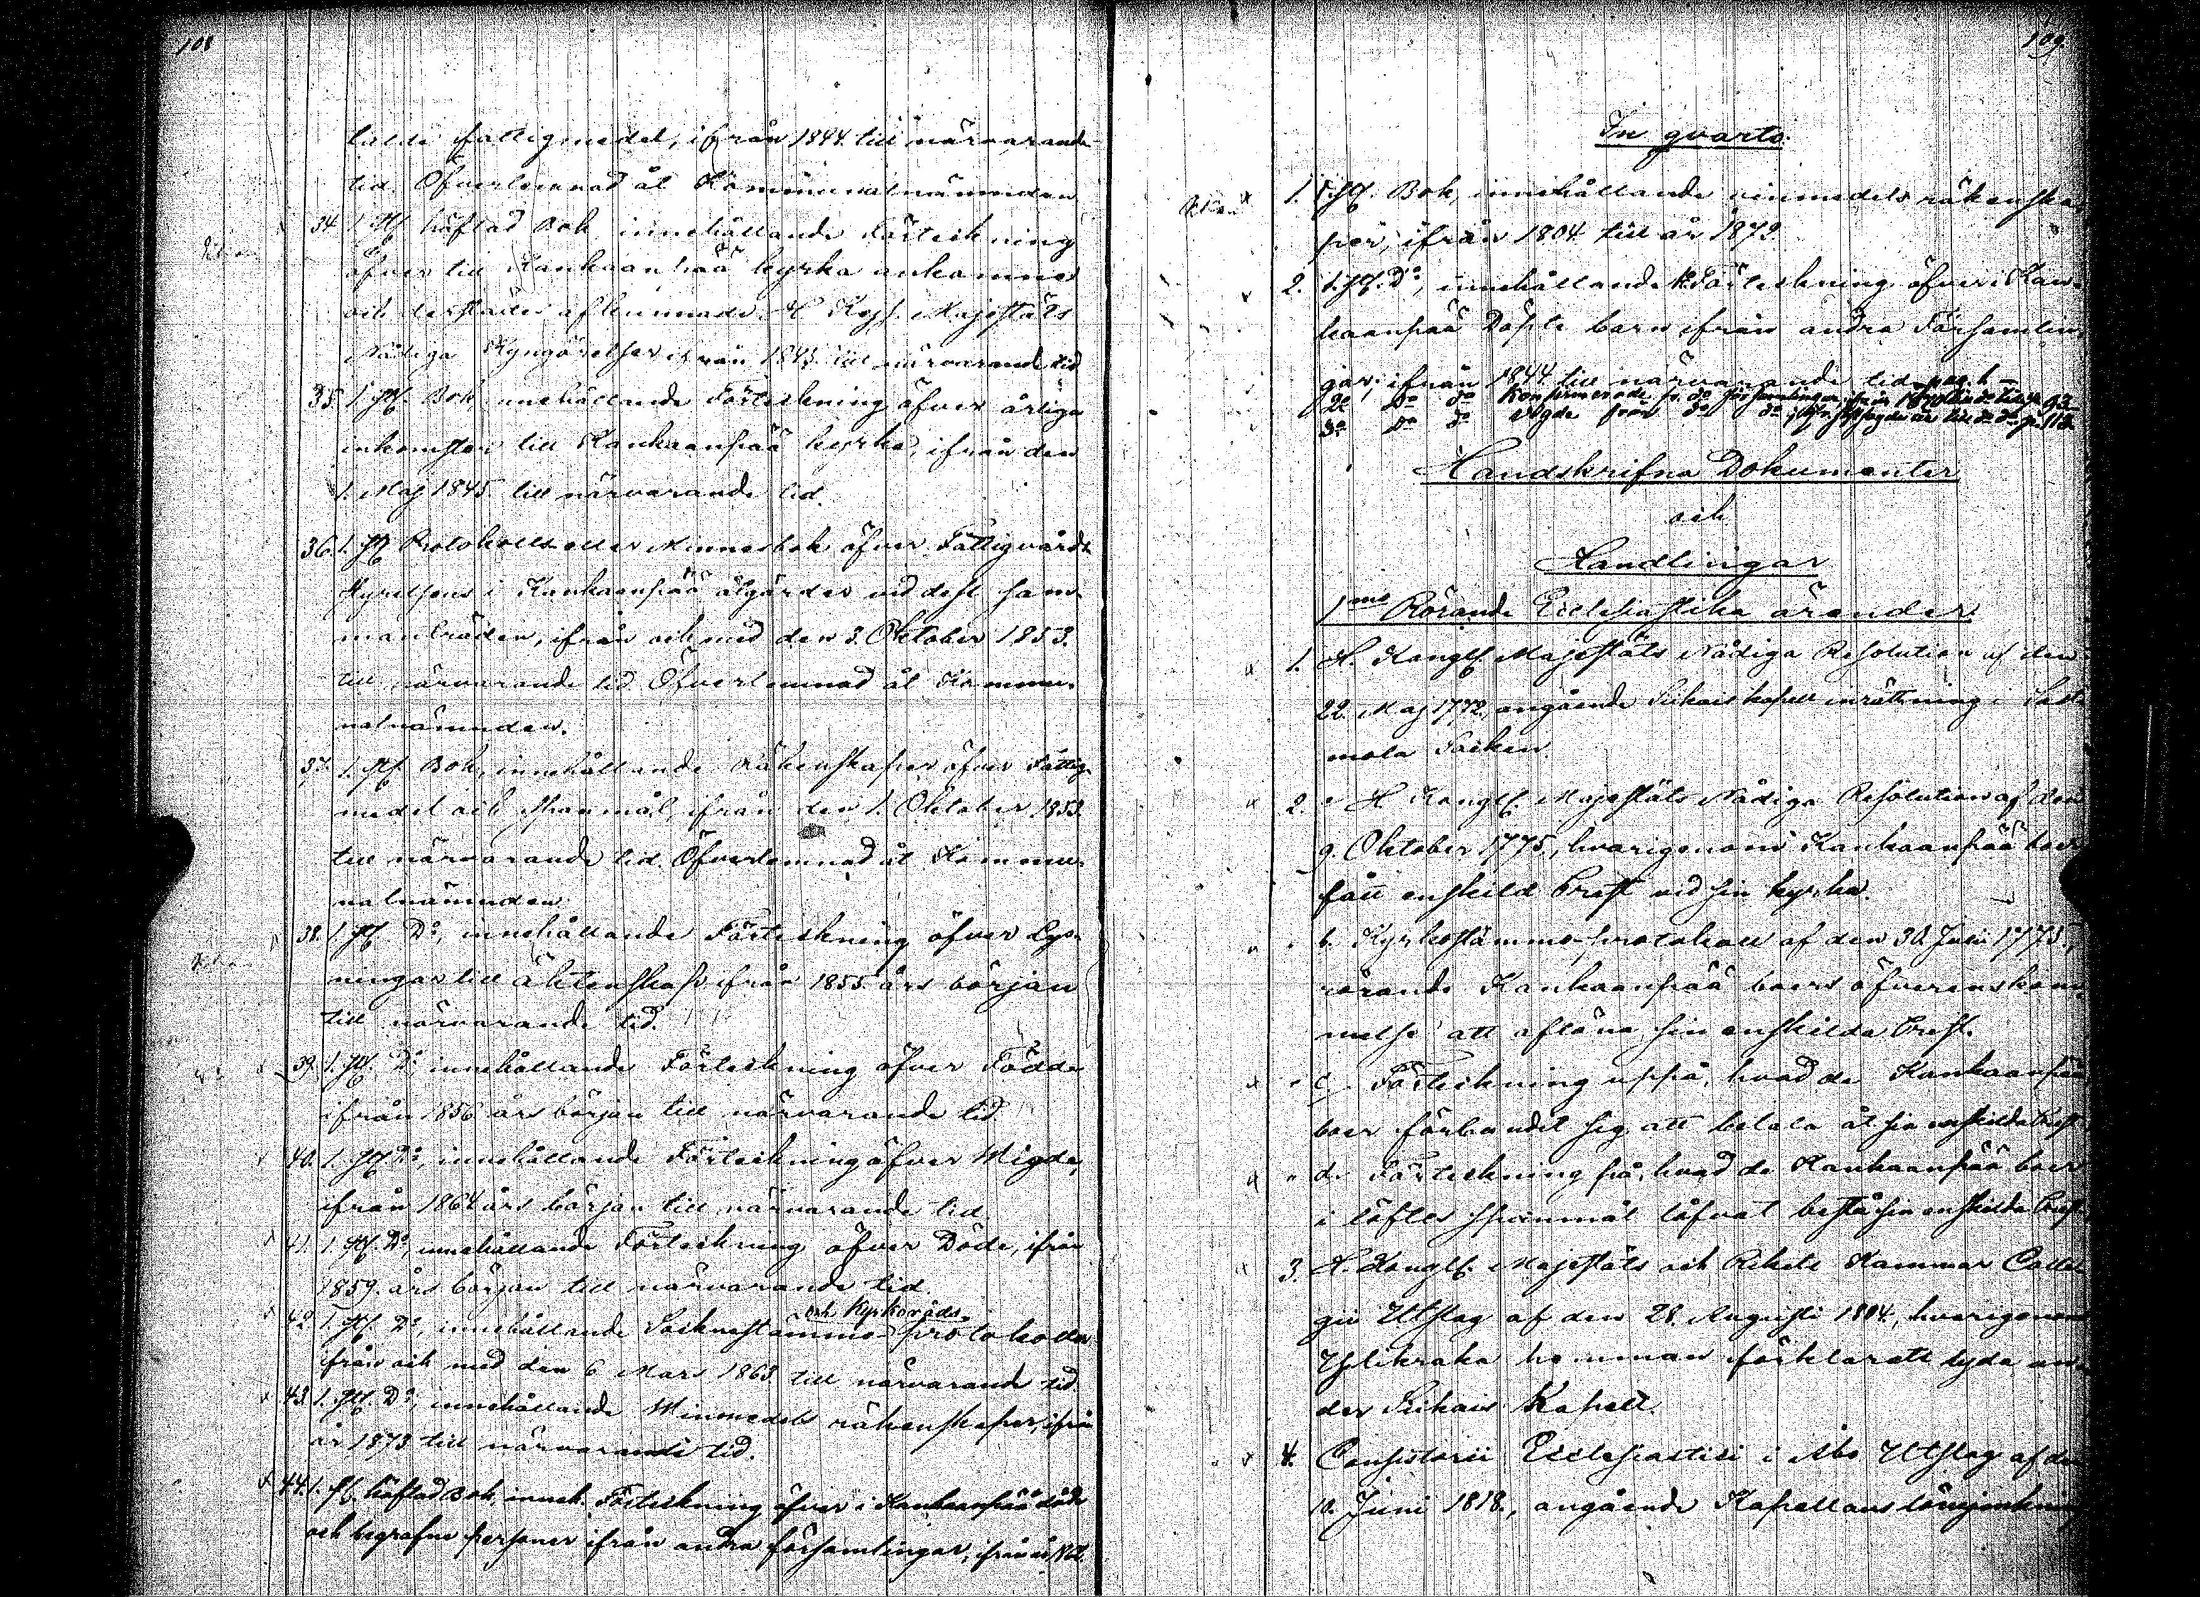 108
talde fattigmedel, ifrån 1844 till närvarande
tid. Öfverlemnad åt Kommunalnämnden
34. 1. St. häftad Bok innehållande Förteckning
öfver till Kankaanpää kyrka ankomne
och derstädes afkunnade H. Kejs. Majestäts
Nådiga Kungörelser ifrån 1845 till närvarande tid
35. 1. St. Bok, innehållande Förteckning öfver årliga
inkomsten till Kankaanpää kyrka, ifrån den
1. Maj 1845 till närvarande tid.
36. 1. St. Protokolls eller Minnesbok öfver Fattigvårds
styrelsens i Kankaanpää åtgärder vid dess sam-
manträden, ifrån och med den 3. Oktober 1853.
till närvarande tid. Öfverlemnad åt Kommu-
nalnämnden.
37. 1. St. Bok, innehållande Räkenskaper öfver Fattig-
medel och Spanmål, ifrån den 1. Oktober 1853.
till närvarande tid. Öfverlemnad åt Kommu-
nalnämnden
38. 1. St. D:o, innehållande Förteckning öfver Lys-
ningar till äktenskap ifrån 1855 års början
till närvarande tid.
39. 1. St. D:o innehållande Förteckning öfver Födde
ifrån 1856 års början till närvarande tid.
40. 1. St. D:o, innehållande Förteckning öfver Wigde,
ifrån 1864 års början till närvarande tid
41. 1. St. D:o, innehållande Förteckning öfver Döde, ifrån
1859 års början till närvarande tid
och Kyrkoråds
42. 1. St. D:o, innehållande Sockenstämmo-protokoller
ifrån och med den 6 Mars 1863 till närvarande tid
43. 1. St. D:o, innehållande Winmedels räkenskaper, ifrån
år 1873 till närvarande tid.
44. 1. St. häftad Bok, inneh. Förteckning öfver i Kankaanpää döde
och begrafne personer ifrån andra församlingar, ifrån år
109.
In qvarto.
1. 1. St. Bok, innehållande vinmedels räkenska-
per, ifrån 1804 till år 1872
2. 1. St. D:o, innehållande 1:o Förteckning öfver i Kan-
kaanpää Döpte barn ifrån andra Församlin-
gar, ifrån 1844 till närvarande tid pag. 1 –
2:o D:o d:o Konfirmerade fr. d:o församlingar
3:o D:o d:o Vigde från d:o d:o
Handskrifna Dokumenter
och
Handlingar
1mo Rörande Ecclesiastika ärender.
1. H. Kongl. Majestäts Nådiga Resolution af den
22. Maj 1772, angående Siikais kapell inrättning i Sasta-
mola Socken
2. a H. Kongl. Majestäts Nådiga Resolution af den
9. Oktober 1775, hvarigenom Kankaanpää boer
fått enskild Prest vid sin kyrka.
" b. Kyrkostämmo-protokoll af den 30 Juli 1775,
rörande Kankaanpää boers öfverenskom-
melse att aflöna sin enskilda Prest.
" c. Förteckning uppå, hvad de Kankaanpää
boer förbundit sig att betala åt sin enskilda Prest
" d. Förteckning på, hvad de Kankaanpää boer
i löftes spanmål lofvat bestå sin enskilda Prest.
3. H. Kongl. Majestäts och Rikets Kammar Colle-
gii Utslag af den 28. Augusti 1804, hvarigenom
hemman förklarats lyda un-
der Siikais Kapell.
4. Consistorii Ecclesiastici i Åbo Utslag af den
10. Juni 1818, angående Kapellans